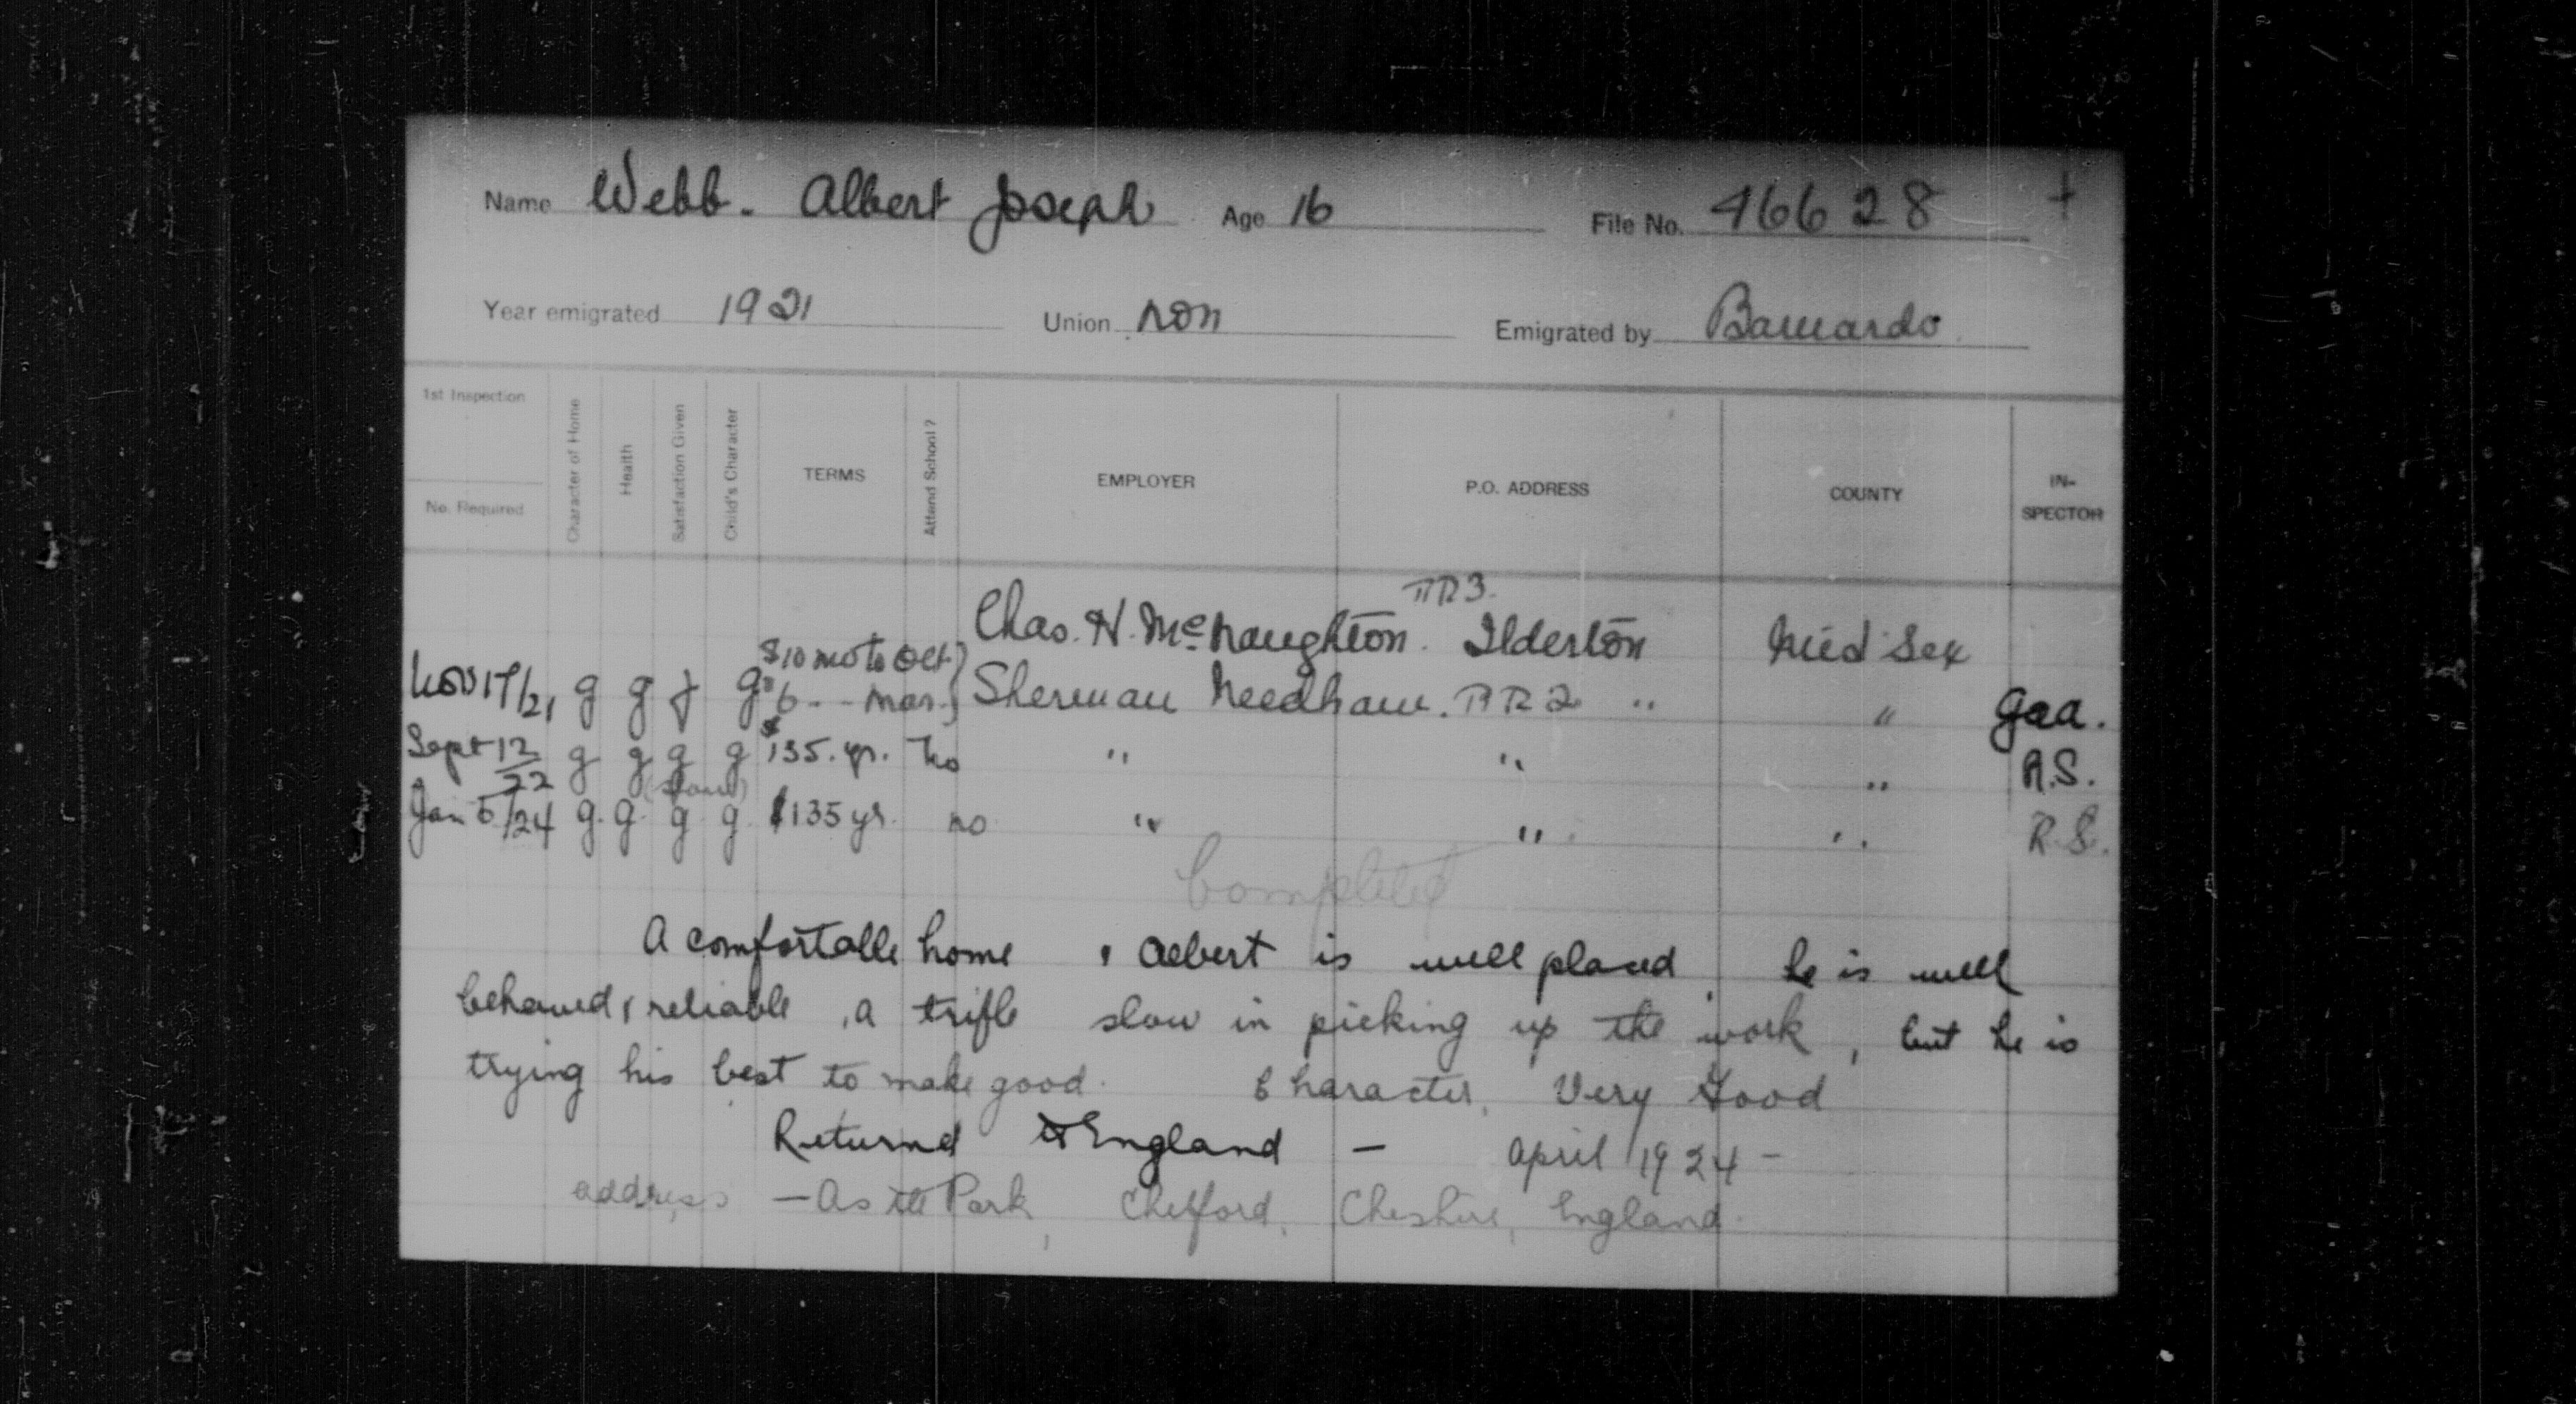 Name Webb. Albert Joseph Age 16 File No. 46628 +
Year emigrated 1921 Union non Emigrated by Barnardo
1st Inspection
No. Required
Character of Home
Health
Satisfaction Given
Child's Character
TERMS
Attend School?
EMPLOYER
P.O. ADDRESS
COUNTY
IN-
SPECTOR
Chas. H. McNaughton. RR3. Ilderton Mid'sex
Nov 17/21 g g f g $10 mo to Oct } $6 - - Mar. } Sherman Needham. RR2 " "
Sept 12/22 g g g (slow) g $135. yr. No " " " R.S.
Jan 5/24 g. g. g g $135 yr. no " " " R.S.
Completed
A comfortable home , Albert is well placed, he is well
behaved & reliable , a trifle slow in picking up the work , but he is
trying his best to make good. Character, Very Good
Returned to England — April 1924 —
address — Park, Chelford, Cheshire, England.